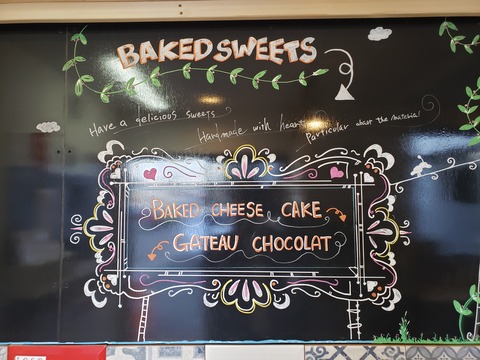 BAKED SWEETS
Have a delicious sweets
Handmade with heart
Particular about the material
BAKED CHEESE CAKE
GATEAU CHOCOLAT